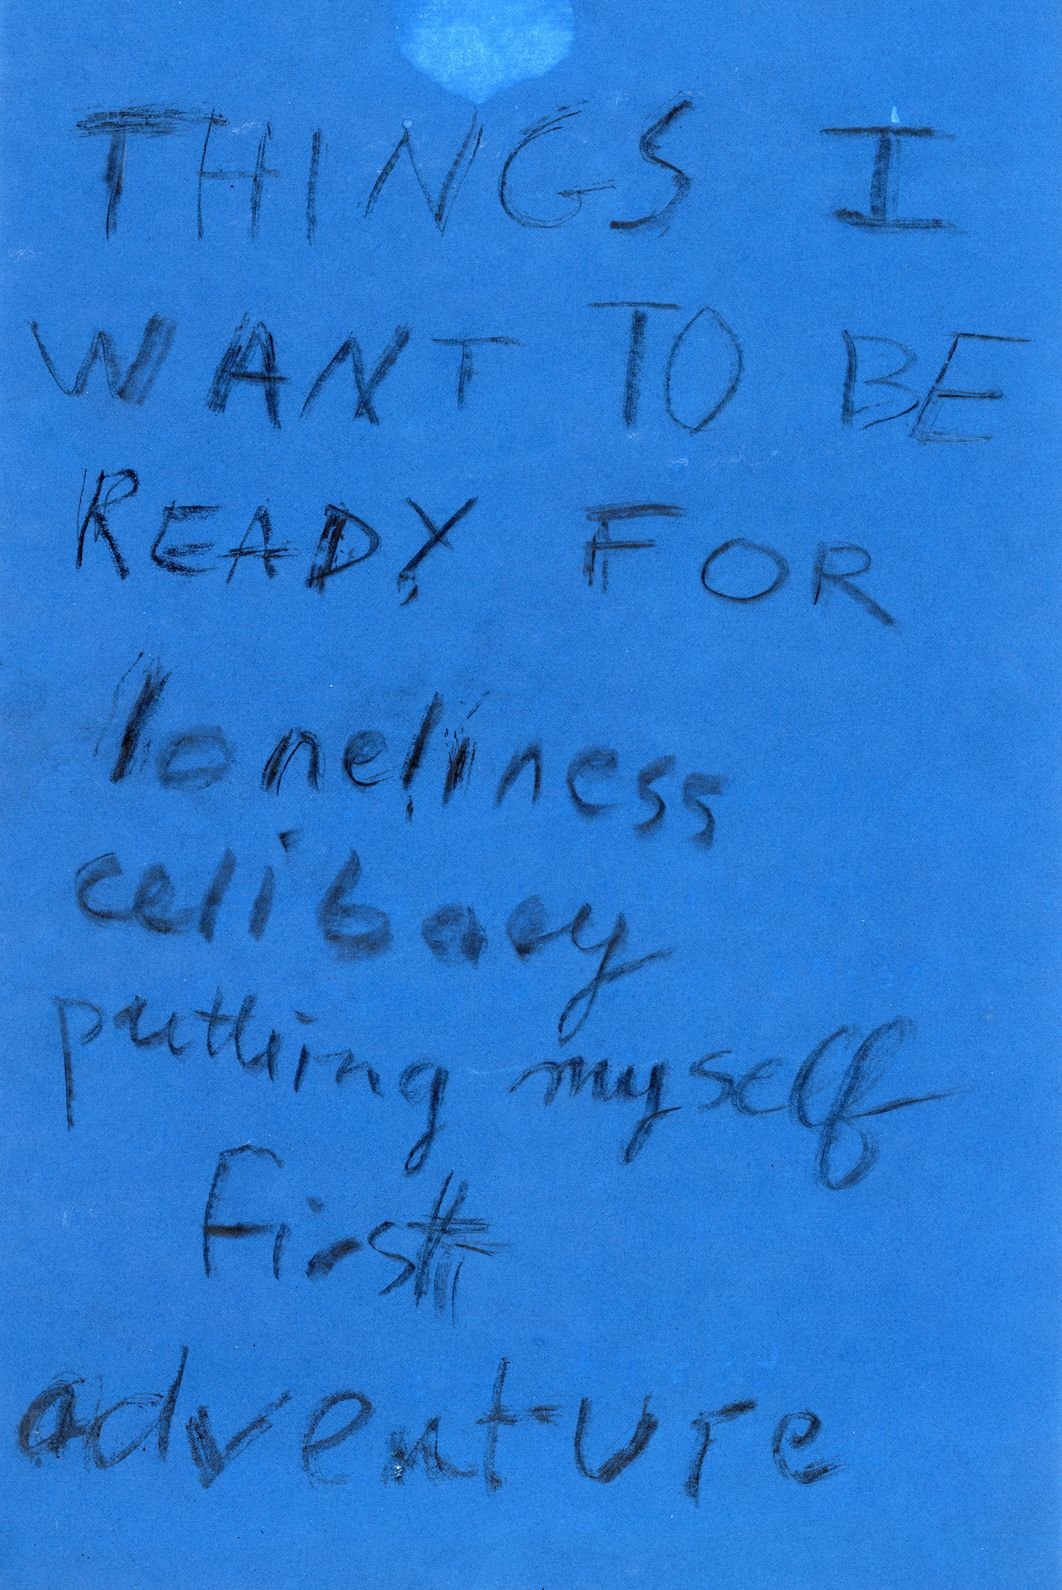 THINGS I
WANT TO BE
READY FOR
loneliness
celibacy
putting myself
First
adventure